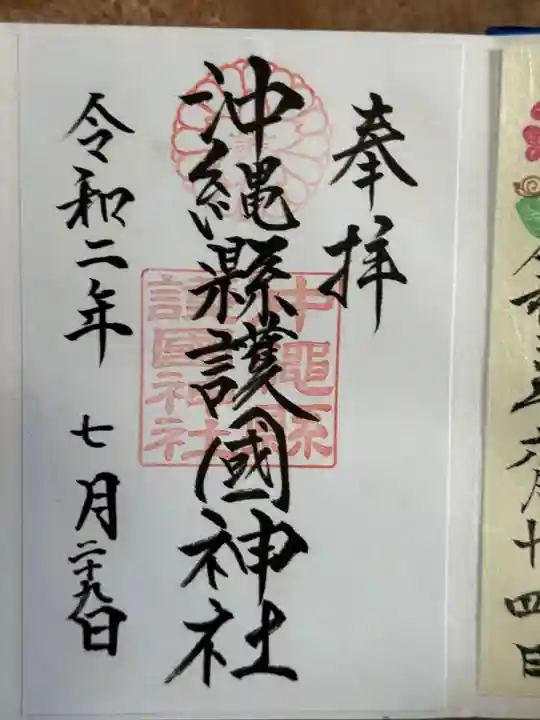 奉拝
沖縄縣護國神社
沖縄縣
護國神社
令和二年 七月二十九日
六月十四日